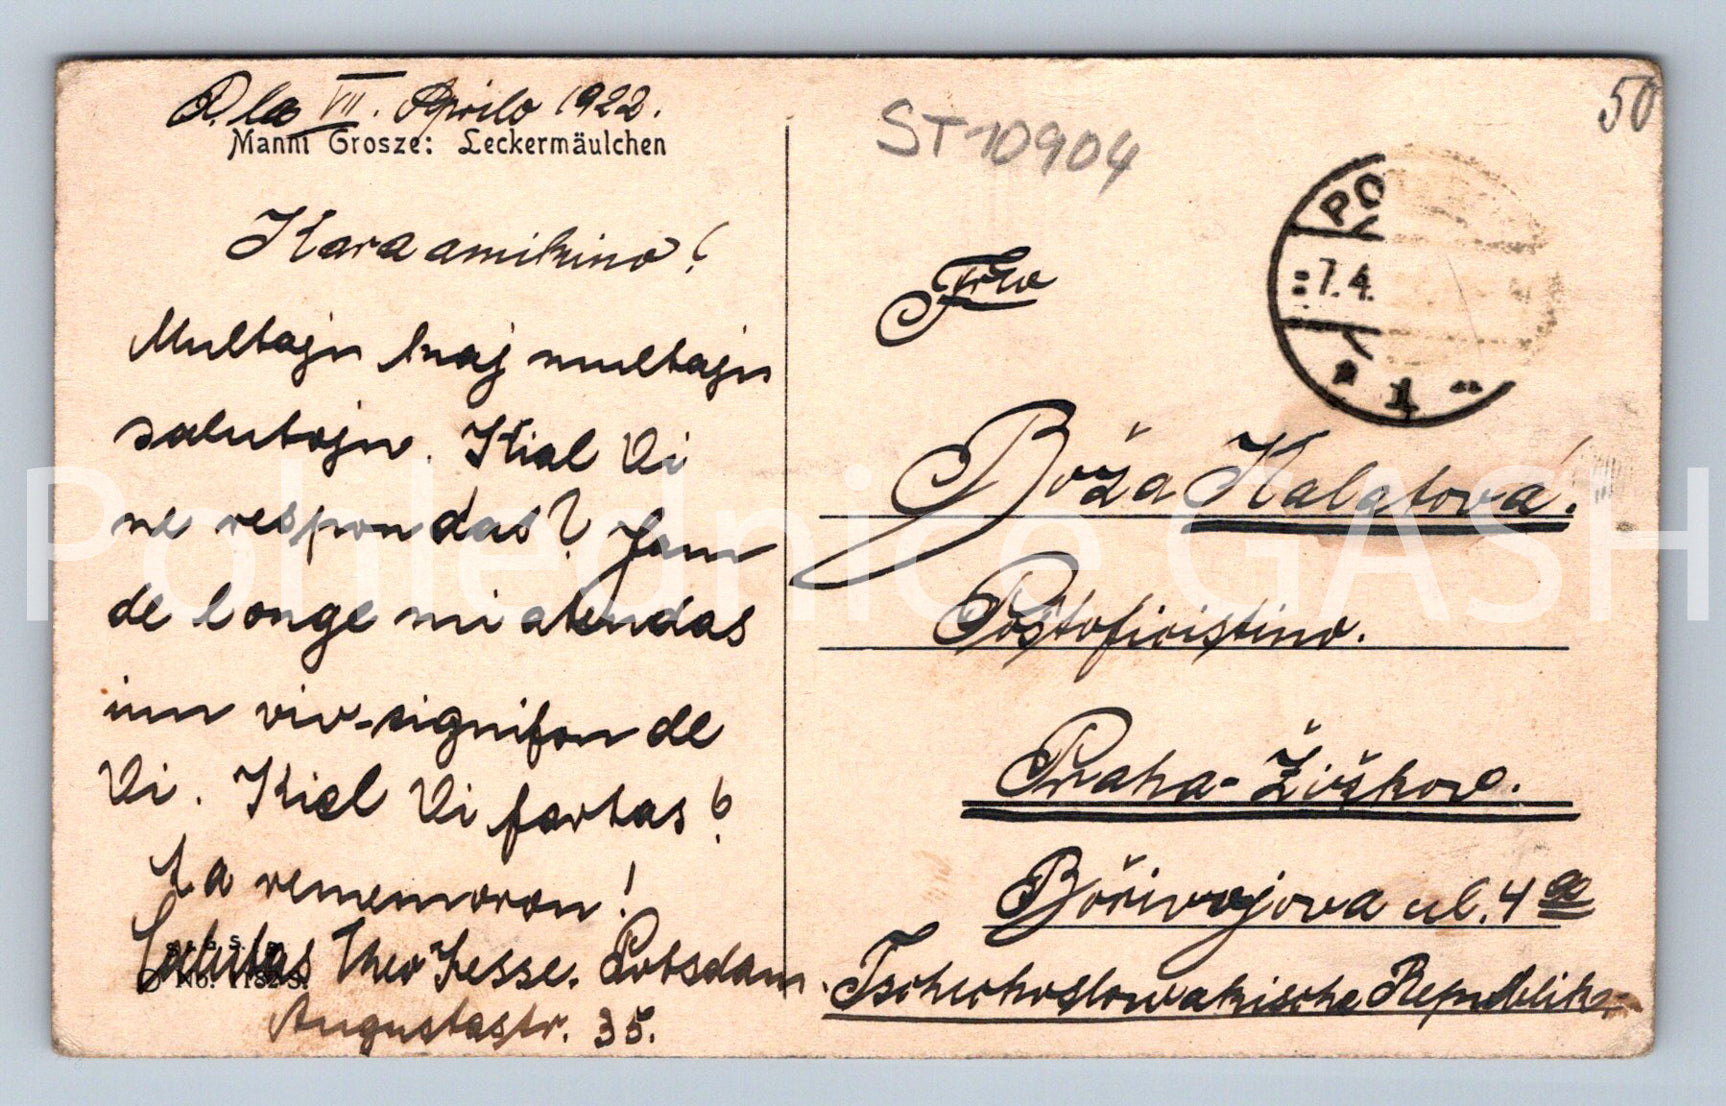 P. la VII. Aprilo 1922.
Manni Grosze: Leckermäulchen
Kara amikino!
Multajn kaj multajn
salutojn. Kial Vi
ne respondas? Jam
de longe mi atendas
iun viv-signifon de
Vi. Kiel Vi fartas?
La rememoron!
Salutas Theo Hesse. Potsdam.
Augustastr. 35.
No. 1182 S.
ST 10904
50
PO
7.4.
1
Frlo
Boža Kalatová.
Postoficistino.
Praha-Žižkow.
Bořiwojova ul. 4
Tschechoslowakische Republik.
Pohlednice GASH